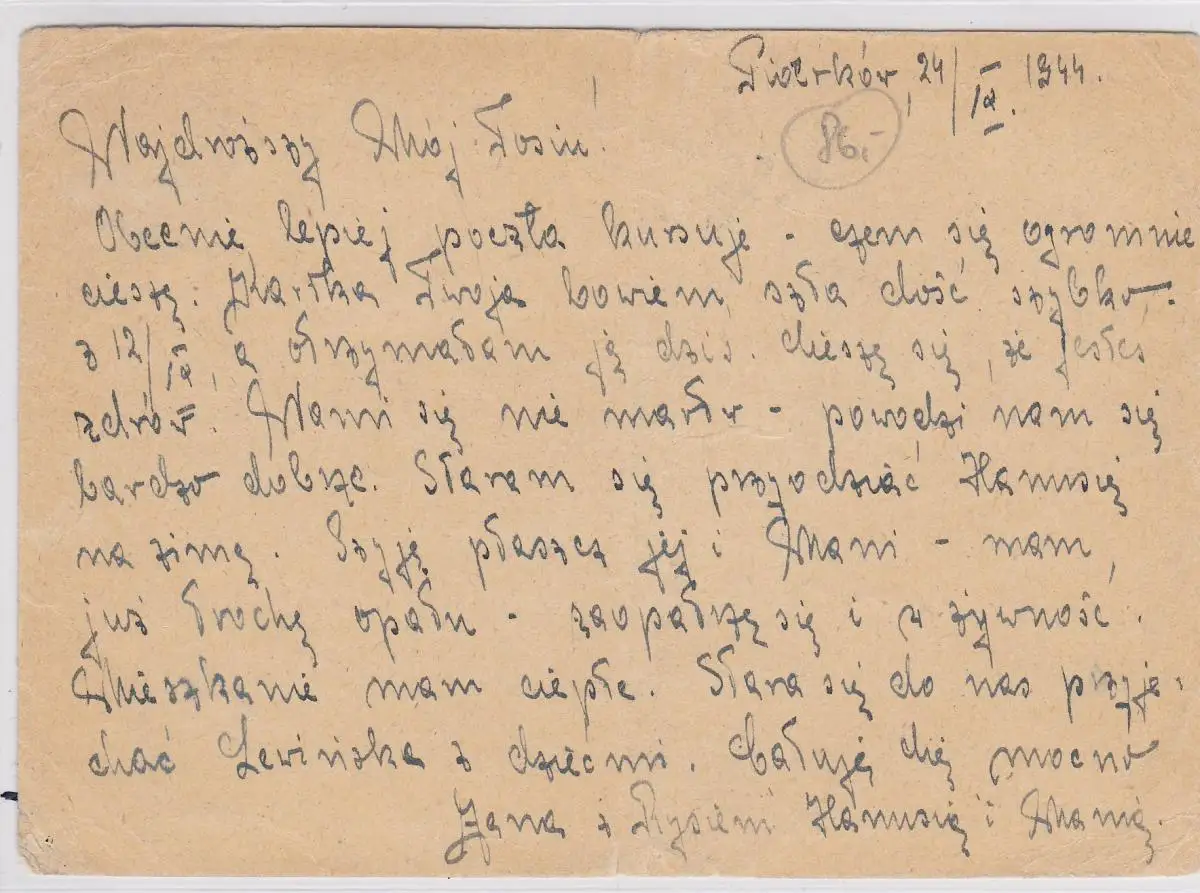 Piotrków, 24/IX. 1944.
86.-
Najdroższy Mój Tosiu!
Obecnie lepiej poczta kursuje - czem się ogromnie
cieszę. Kartka Twoja bowiem szła dość szybko -
z 12/IX, a otrzymałam ją dziś. Cieszę się, że jesteś
zdrów. Nami się nie martw - powodzi nam się
bardzo dobrze. Staram się przyodziać Hanusię
na zimę. Szyję płaszcz jej i Mani - mam
już trochę opału - zaopatrzę się i w żywność.
Mieszkanie mam ciepłe. Stara się do nas przyje-
chać Lewińska z dziećmi. Całuję Cię mocno
Jana z Rysiem Hanusią i Manią.